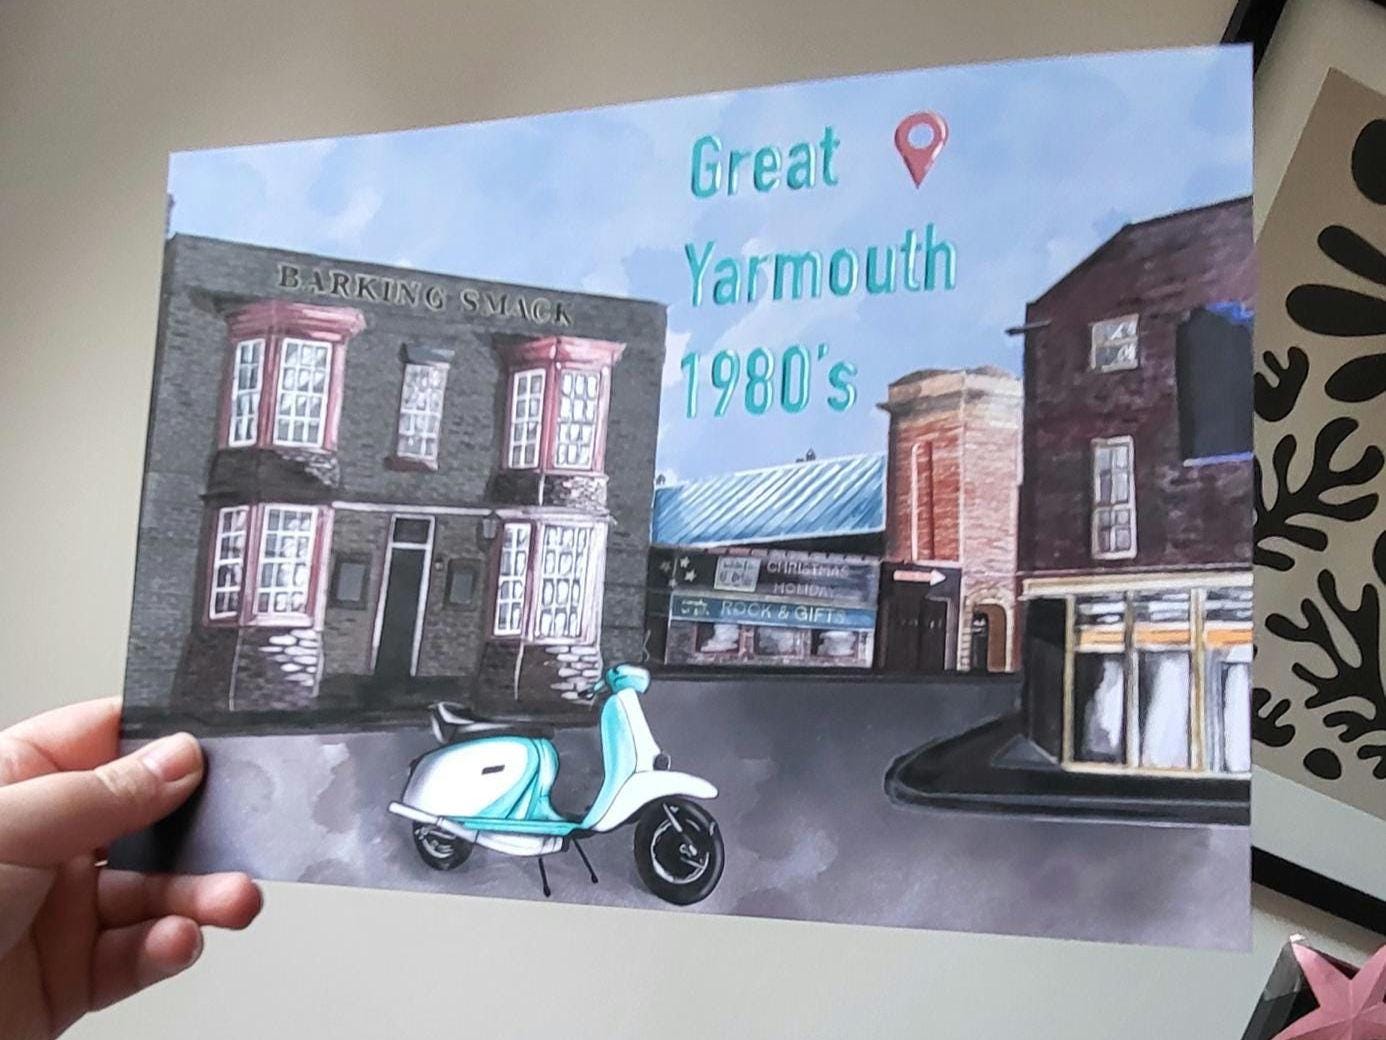 Great
Yarmouth
1980's
BARKING SMACK
CHRISTMAS
HOLIDAY
ROCK & GIFTS